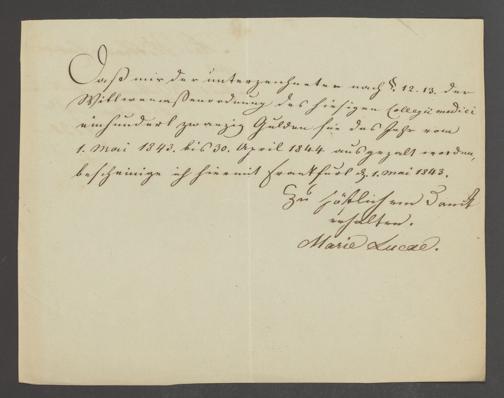 Daß mir der unterzeichneten nach §. 12. 13. der
Wittwenkassenordnung des hiesigen Collegii medici
einhundert zwanzig Gulden für das Jahr vom
1. Mai 1843. bis 30. April 1844 ausgezalt worden,
bescheinige ich hiermit Frankfurt d. 1. Mai 1843.
Zu höflichem Dank
erhalten.
Marie Lucae.